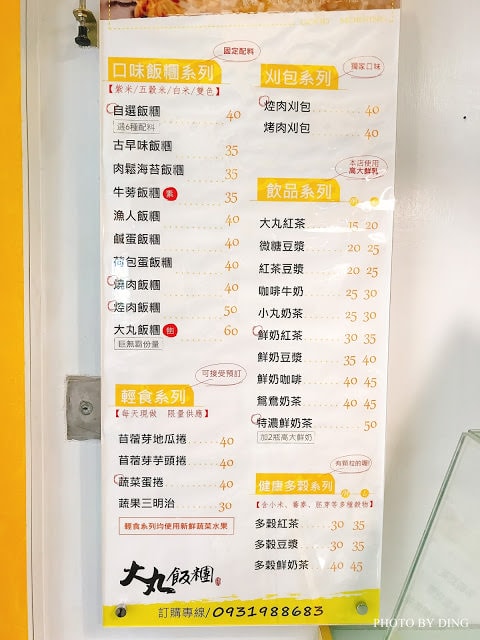 GOOD MORNING
固定配料
口味飯糰系列
【紫米/五穀米/白米/雙色】
自選飯糰 40
選6種配料
古早味飯糰 35
肉鬆海苔飯糰 35
牛蒡飯糰 素 35
漁人飯糰 40
鹹蛋飯糰 40
荷包蛋飯糰 40
燒肉飯糰 40
焢肉飯糰 50
大丸飯糰 60
巨無霸份量
可接受預訂
輕食系列
【每天現做 限量供應】
苜蓿芽地瓜捲 40
苜蓿芽芋頭捲 40
蔬菜蛋捲 40
蔬果三明治 30
輕食系列均使用新鮮蔬菜水果
大丸飯糰
獨家口味
刈包系列
焢肉刈包 40
烤肉刈包 40
本店使用
高大鮮乳
飲品系列
大丸紅茶 15 20
微糖豆漿 20 25
紅茶豆漿 20 25
咖啡牛奶 25 30
小丸奶茶 25 30
鮮奶紅茶 30 35
鮮奶豆漿 35 40
鮮奶咖啡 40 45
鴛鴦奶茶 40 45
特濃鮮奶茶 50
加2瓶高大鮮奶
有顆粒的喔!
健康多穀系列
【含小米、蕎麥、胚芽等多種穀物】
多穀紅茶 30 35
多穀豆漿 30 35
多穀鮮奶茶 40 45
訂購專線/0931988683
PHOTO BY DING